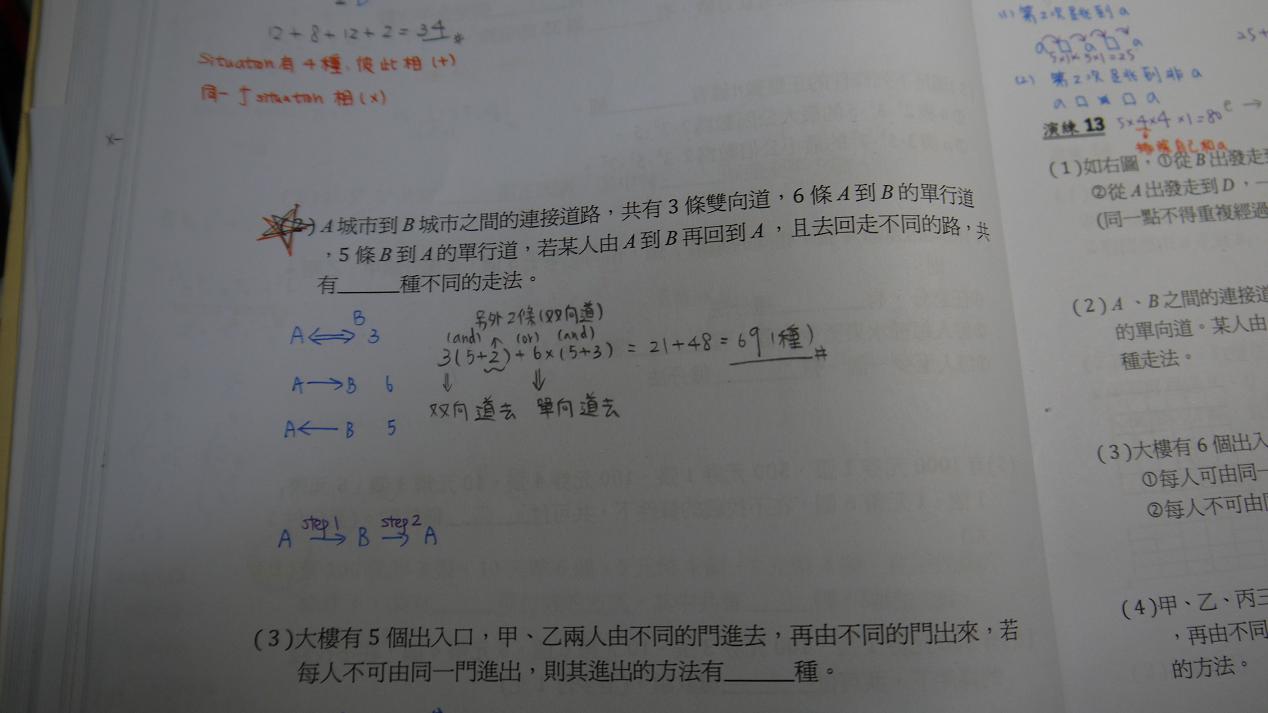 12+8+12+2=34
Situation有4種,彼此相(+)
同一個situation相(×)
(2)A城市到B城市之間的連接道路,共有3條雙向道,6條A到B的單行道
,5條B到A的單行道,若某人由A到B再回到A,且去回走不同的路,共
有______種不同的走法。
另外2條(双向道)
(and) (or) (and)
A⟺B 3
3(5+2)+6×(5+3)=21+48=69(種)
A→B 6
双向道去 單向道去
A←B 5
step1 step2
A→B→A
(3)大樓有5個出入口,甲、乙兩人由不同的門進去,再由不同的門出來,若
每人不可由同一門進出,則其進出的方法有______種。
(1)第2次是找到a
a□a□a
5×1×5×1=25
25+
(2)第2次是找到非a
a□×□a
演練13
5×4×4×1=80
(1)如右圖,①從B出發走到
②從A出發走到D,一
(同一點不得重複經過
(2)A、B之間的連接道
的單向道。某人由
種走法。
(3)大樓有6個出入
①每人可由同一
②每人不可由同
(4)甲、乙、丙三
,再由不同
的方法。